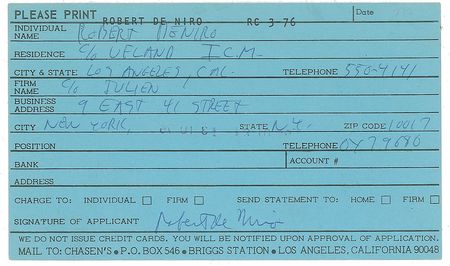 PLEASE PRINT ROBERT DE NIRO RC 3-76 Date
INDIVIDUAL NAME ROBERT DENIRO
RESIDENCE C/O UFLAND I.C.M.
CITY & STATE LOS ANGELES, CAL. TELEPHONE 550-4141
FIRM NAME C/O JULIEN
BUSINESS ADDRESS 9 EAST 41 STREET
CITY NEW YORK, STATE N.Y. ZIP CODE 10017
POSITION TELEPHONE OX79680
BANK ACCOUNT #
ADDRESS
CHARGE TO: INDIVIDUAL FIRM SEND STATEMENT TO: HOME FIRM
SIGNATURE OF APPLICANT Robert de Niro
WE DO NOT ISSUE CREDIT CARDS. YOU WILL BE NOTIFIED UPON APPROVAL OF APPLICATION.
MAIL TO: CHASEN'S • P.O. BOX 546 • BRIGGS STATION • LOS ANGELES, CALIFORNIA 90048